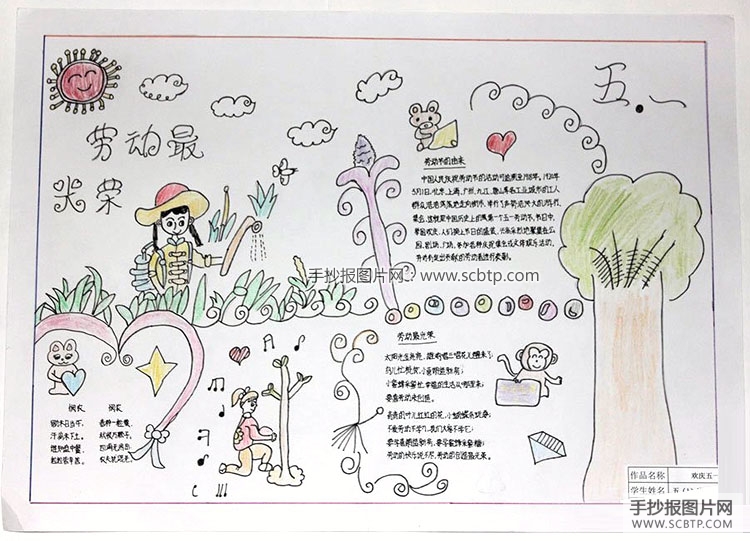 劳动最
光荣
五.一
劳动节的由来
中国人民庆祝劳动节的活动可追溯至1918年。1920年
5月1日,北京、上海、广州、九江、唐山等各工业城市的工人
群众浩浩荡荡地走向街市、举行了声势浩大的游行、
集会。这就是中国历史上的第一个五一劳动节。节日中,
举国欢庆,人们换上节日的盛装,兴高采烈地聚集在公
园、剧场、广场,参加各种庆祝集会或文体娱乐活动,
并对有突出贡献的劳动者进行表彰。
手抄报图片网:www.scbtp.com
悯农
锄禾日当午,
汗滴禾下土。
谁知盘中餐,
粒粒皆辛苦。
悯农
春种一粒粟,
秋收万颗子。
四海无闲田,
农夫犹饿死。
劳动最光荣
太阳光金亮亮,雄鸡唱三唱花儿醒来了,
鸟儿忙梳妆,小喜鹊造新房,
小蜜蜂采蜜忙,幸福的生活从哪里来,
要靠劳动来创造。
青青的叶儿红红的花,小蝴蝶贪玩耍,
不爱劳动不学习,我们大家不学它,
要学喜鹊造新房,要学蜜蜂采蜜糖,
劳动的快乐说不尽,劳动的创造最光荣。
作品名称 欢庆五一
学生姓名
手抄报图片网
WWW.SCBTP.COM